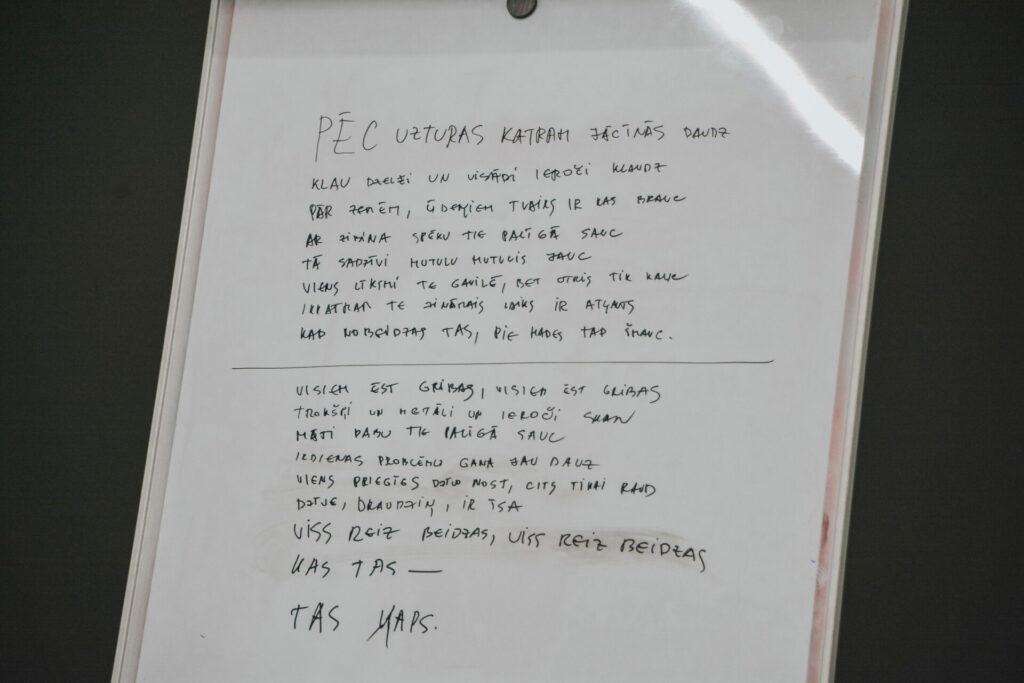 PĒC UZTURAS KATRAM JĀCĪNĀS DAUDZ
KLAU DZELŽI UN VISĀDI IEROČI KLAUDZ
PĀR ZEMĒM, ŪDEŅIEM TVAIKS IR KAS BRAUC
AR ZIRŅA SPĒKU TIE PALĪGĀ SAUC
TĀ SADZĪVI MUTULU MUTULIS JAUC
VIENS LĪKSMI TE GAVILĒ, BET OTRIS TIK KAUC
IKKATRAM TE ZINĀMAIS LAIKS IR ATĻAUTS
KAD NOBEIDZAS TAS, PIE HADES TAP ŠMAUC.
VISIEM ĒST GRIBAS, VISIEM ĒST GRIBAS
TROKŠŅI UN METĀLI UN IEROČI SKAN
MĀTI DABU TIE PALĪGĀ SAUC
IKDIENAS PROBLĒMU GANA JAU DAUZ
VIENS PRIEGIES DZĪVO NOST, CITS TIKAI RAUD
DZĪVE, DRAUDZIŅ, IR ĪSA
VISS REIZ BEIDZAS, VISS REIZ BEIDZAS
KAS TAS —
TAS KAPS.